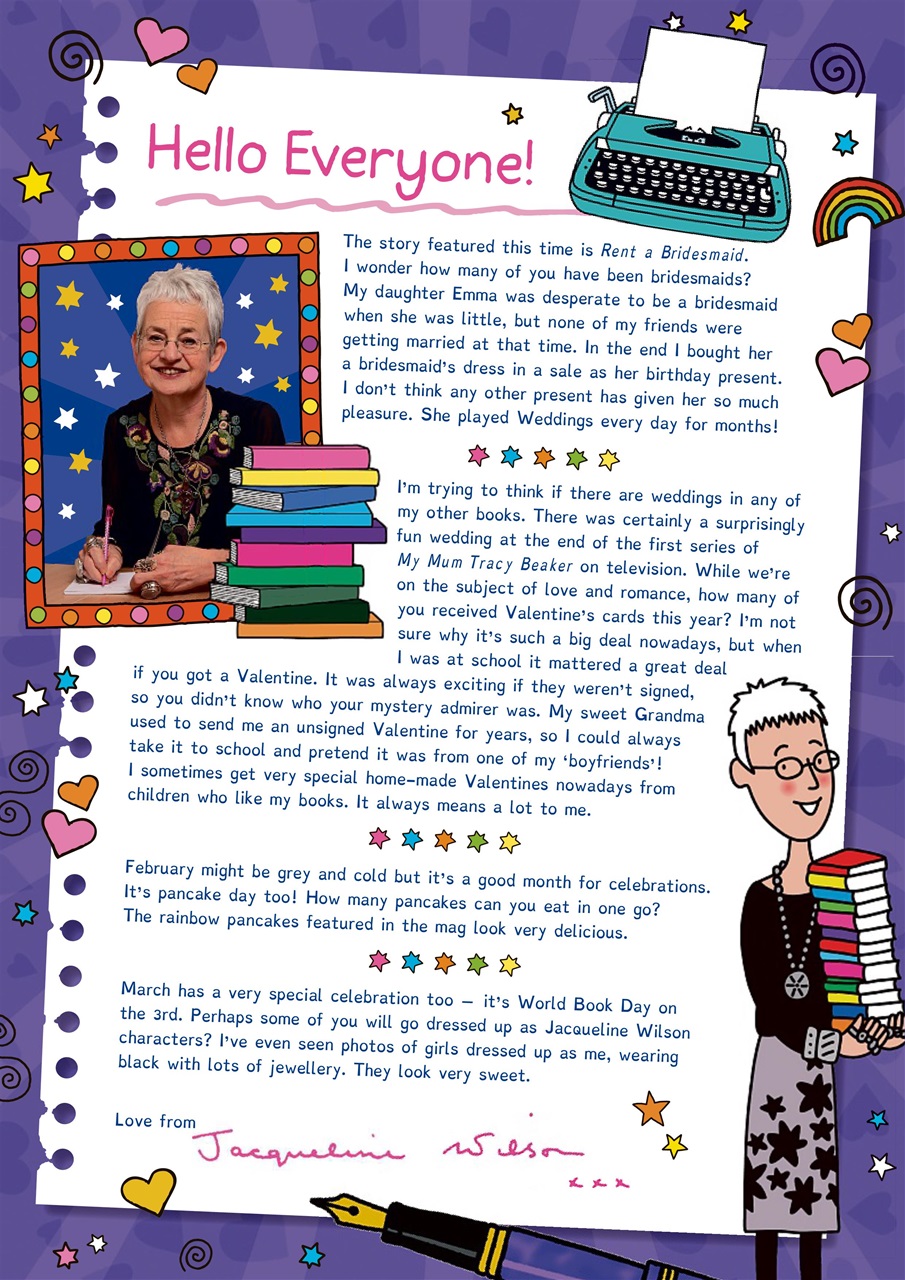 Hello Everyone!
The story featured this time is Rent a Bridesmaid.
I wonder how many of you have been bridesmaids?
My daughter Emma was desperate to be a bridesmaid
when she was little, but none of my friends were
getting married at that time. In the end I bought her
a bridesmaid's dress in a sale as her birthday present.
I don't think any other present has given her so much
pleasure. She played Weddings every day for months!
I'm trying to think if there are weddings in any of
my other books. There was certainly a surprisingly
fun wedding at the end of the first series of
My Mum Tracy Beaker on television. While we're
on the subject of love and romance, how many of
you received Valentine's cards this year? I'm not
sure why it's such a big deal nowadays, but when
I was at school it mattered a great deal
if you got a Valentine. It was always exciting if they weren't signed,
so you didn't know who your mystery admirer was. My sweet Grandma
used to send me an unsigned Valentine for years, so I could always
take it to school and pretend it was from one of my 'boyfriends'!
I sometimes get very special home-made Valentines nowadays from
children who like my books. It always means a lot to me.
February might be grey and cold but it's a good month for celebrations.
It's pancake day too! How many pancakes can you eat in one go?
The rainbow pancakes featured in the mag look very delicious.
March has a very special celebration too – it's World Book Day on
the 3rd. Perhaps some of you will go dressed up as Jacqueline Wilson
characters? I've even seen photos of girls dressed up as me, wearing
black with lots of jewellery. They look very sweet.
Love from
Jacqueline Wilson
x x x